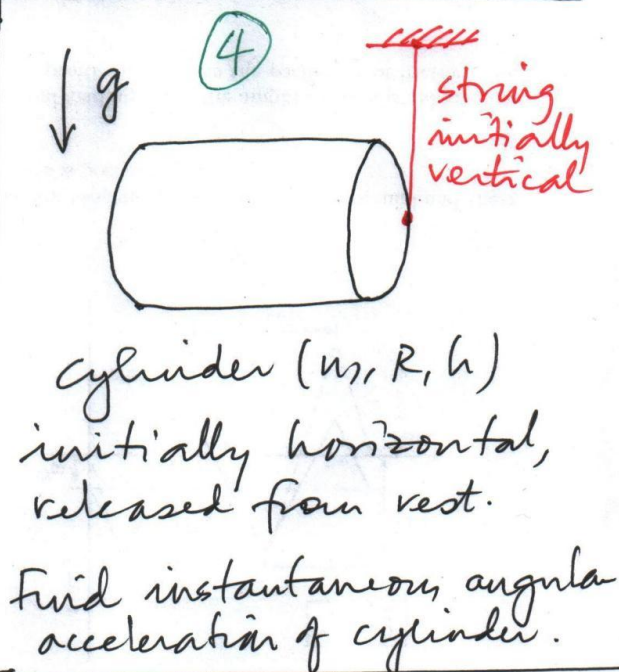 g
4
string
initially
vertical
cylinder (m, R, h)
initially horizontal,
released from rest.
Find instantaneous angular
acceleration of cylinder.